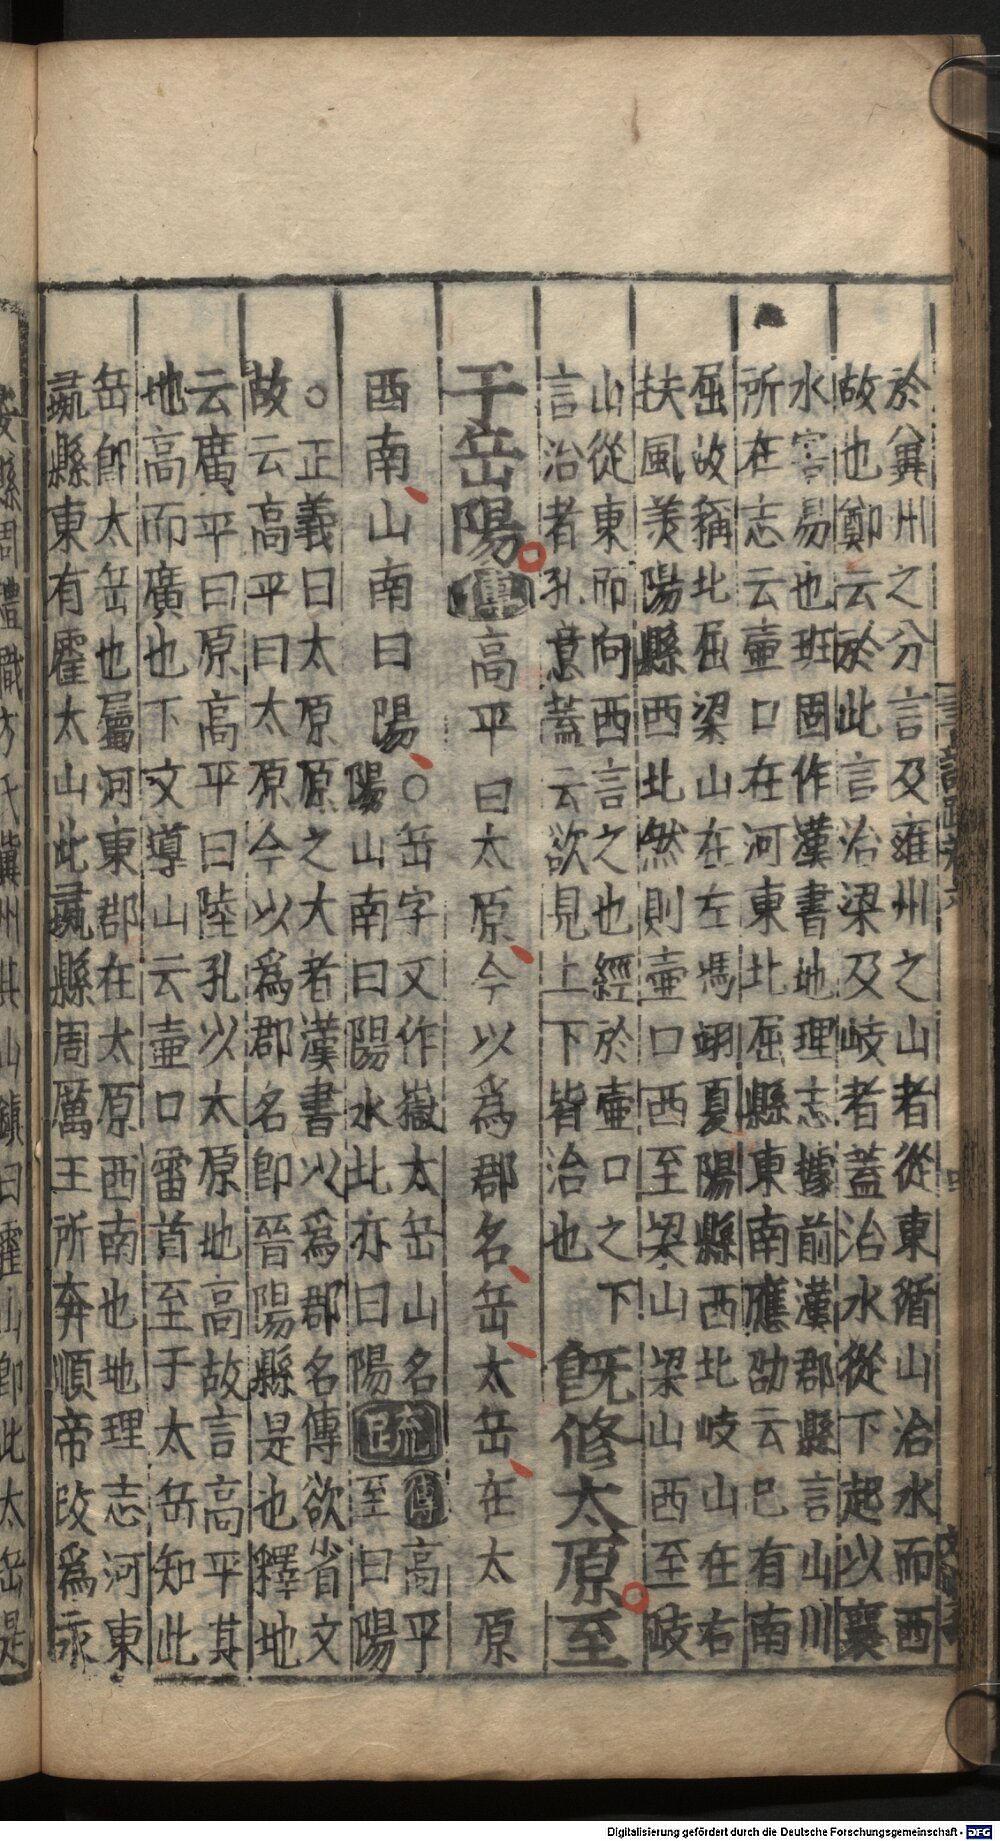 於冀州之分言及雍州之山者從東循山治水而西
故也鄭云於此言治梁及岐者蓋治水從下起以襄
水害易也班固作漢書地理志據前漢郡縣言山川
所在志云壷口在河東北屈縣東南應劭云巳有南
屈故稱北屈梁山在左馮翊夏陽縣西北岐山在右
扶風羙陽縣西北然則壷口西至梁山梁山西至岐
山從東而向西言之也經於壷口之下
言治者孔意蓋云欲見上下皆治也
旣修太原至
于岳陽
傳
高平曰太原今以爲郡名岳太岳在太原
西南山南曰陽
○岳字又作嶽太岳山名
陽山南曰陽水北亦曰陽
疏
傳高平
至曰陽
○正義曰太原原之大者漢書以爲郡名傳欲省文
故云高平曰太原今以爲郡名卽晉陽縣是也釋地
云廣平曰原高平曰陸孔以太原地高故言高平其
地高而廣也下文導山云壷口雷首至于太岳知此
岳卽太岳也屬河東郡在太原西南也地理志河東
彘縣東有霍太山此彘縣周厲王所奔順帝改爲永
縣周禮職方氏冀州其山鎮曰霍山卽此太岳是
Digitalisierung gefördert durch die Deutsche Forschungsgemeinschaft - DFG